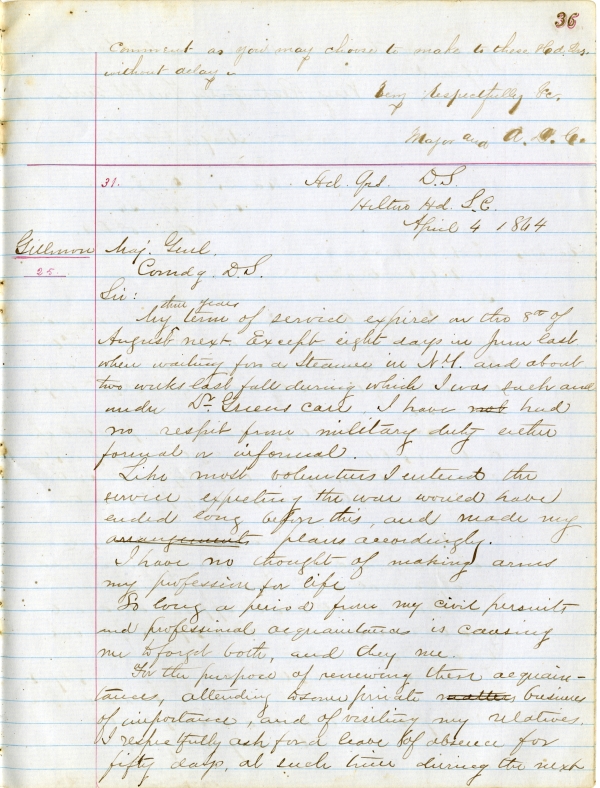 36
Comment as you may choose to make to these Hd. Qrs.
without delay.
Very Respectfully &c.
Major and A. D. C.
31. Hd. Qrs. D. S.
Hilton Hd S. C.
April 4 1864
Gillmore Maj. Genl.
25. Comdg. D. S.
Sir:
three years
My term of service expires on the 8th of
August next. Except eight days in June last
when waiting for a Steamer in N.Y. and about
two weeks last fall during which I was sick and
under Dr. Greens care I have not had
no respit from military duty either
formal or informal.
Like most volunteers I entered the
service expecting the war would have
ended long before this, and made my
arrangements plans accordingly.
I have no thought of making arms
my profession for life
So long a period from my civil persuits
and professional acquaintances is causing
me to forget both, and they me.
For the purpose of renewing these acquain-
tances, attending to some private matters business
of importance, and of visiting my relatives
I respectfully ask for a leave of absence for
fifty days, at such time during the next